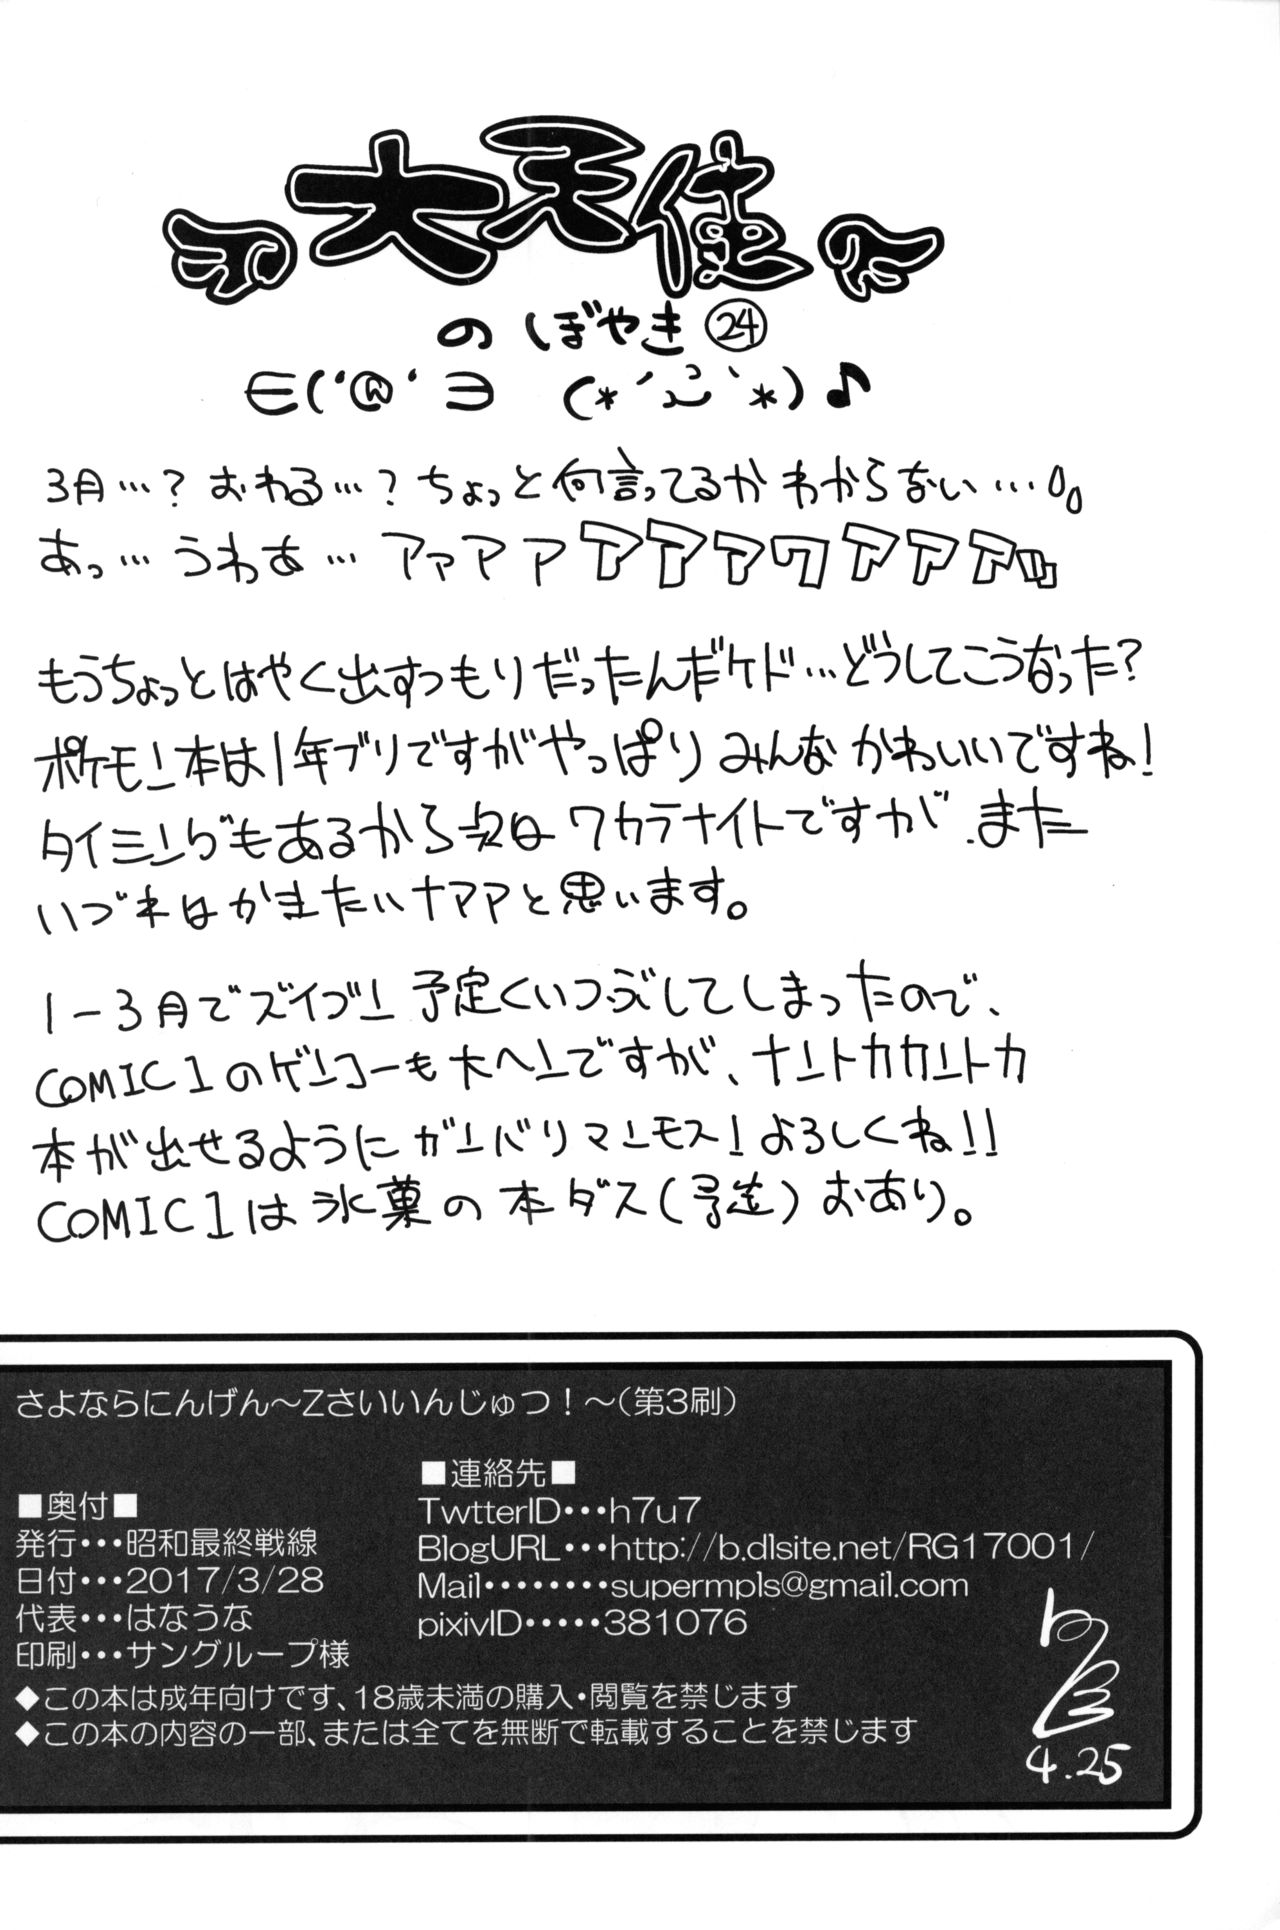 大天使
のぼやき㉔
∈('@'ヨ (*´ω`*)♪
3月…?おわる…?ちょっと何言ってるかわからない…
あっ…うわぁ…アァアァアアァワアアアッ
もうちょっとはやく出すつもりだったんだケド…どうしてこうなった?
ポケモン本は1年ブリですがやっぱりみんなかわいいですね!
タイミングもあるから次はワカラナイトですが、また
いづれはかきたいナァァと思います。
1-3月でズイブン予定くいつぶしてしまったので、
COMIC1のゲンコーも大ヘンですが、ナントカカントカ
本が出せるようにガンバリマンモス!よろしくね!!
COMIC1は氷菓の本ダス(予定)おわり。
さよならにんげん〜Zさいいんじゅつ!〜(第3刷)
■奥付■
発行・・・昭和最終戦線
日付・・・2017/3/28
代表・・・はなうな
印刷・・・サングループ様
■連絡先■
TwtterID・・・h7u7
BlogURL・・・http://b.dlsite.net/RG17001/
Mail・・・・・・・・supermpls@gmail.com
pixivID・・・・・381076
◆この本は成年向けです、18歳未満の購入・閲覧を禁じます
◆この本の内容の一部、または全てを無断で転載することを禁じます
4.25